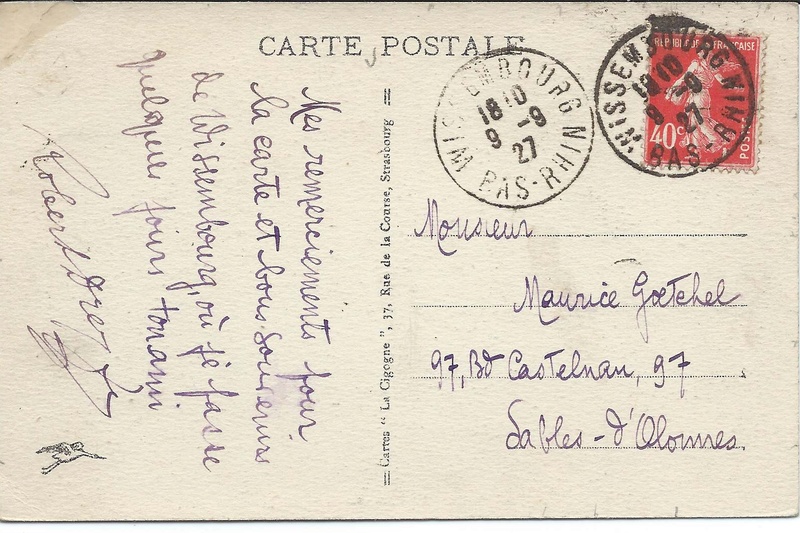 CARTE POSTALE
Mes remerciements pour
la carte et bons souvenirs
de Wissembourg, où je passe
quelques jours ton ami
Robert
Cartes " La Cigogne ", 37, Rue de la Course, Strasbourg
WISSEMBOURG
18 10
9 -9
27
BAS-RHIN
WISSEMBOURG
18 10
9 -9
27
BAS-RHIN
REPUBLIQUE FRANÇAISE
40c
POSTES
Monsieur
Maurice Goetchel
97, Bd Castelnau, 97
Sables-d'Olonnes.